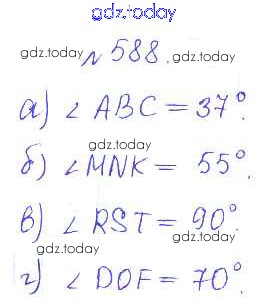 gdz.today
gdz.today
№ 588. gdz.today
а) ∠ ABC = 37°.
gdz.today gdz.today
б) ∠ MNK = 55°.
в) ∠ RST = 90°.
gdz.today gdz.today
г) ∠ DOF = 70°.